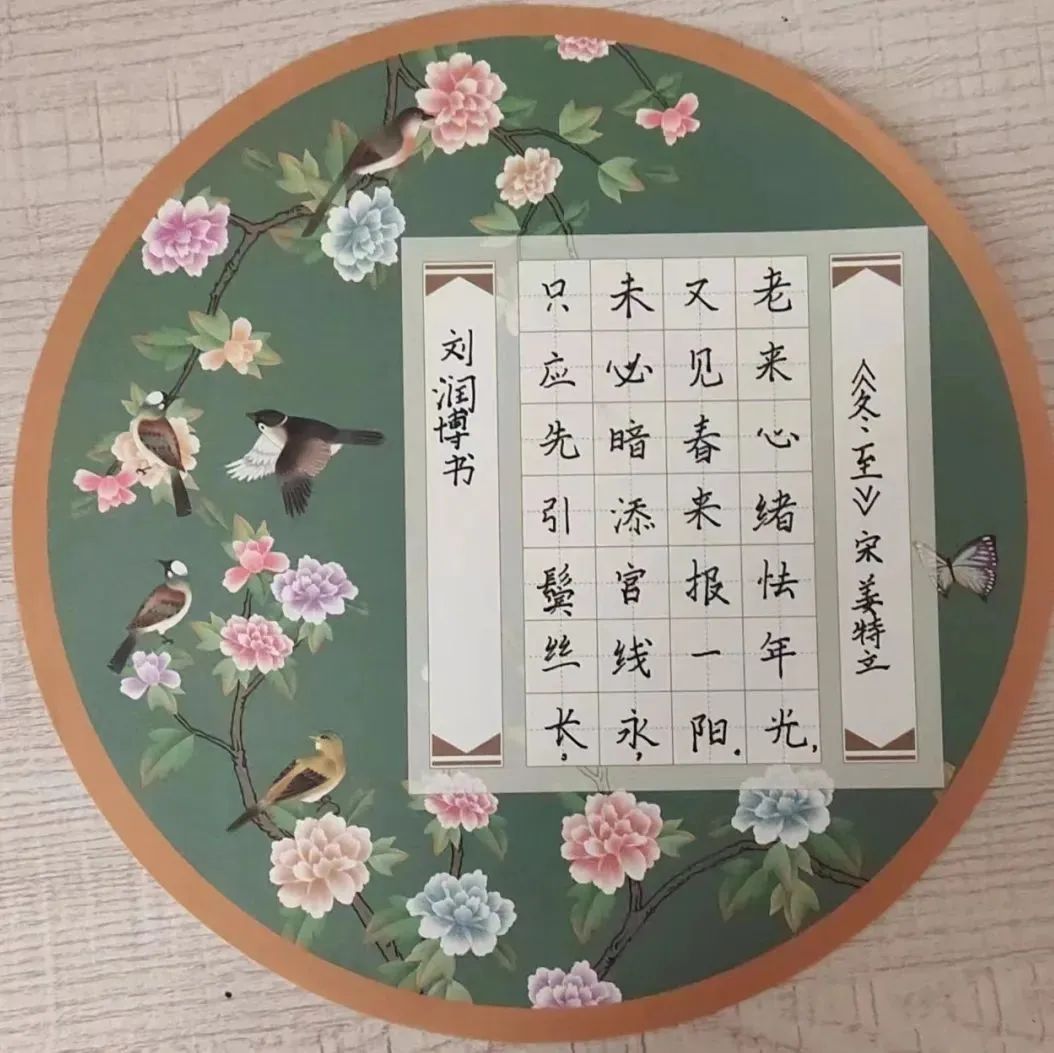 《冬至》宋 姜特立
老来心绪怯年光,
又见春来报一阳.
未必暗添宫线永,
只应先引鬓丝长。
刘润博书